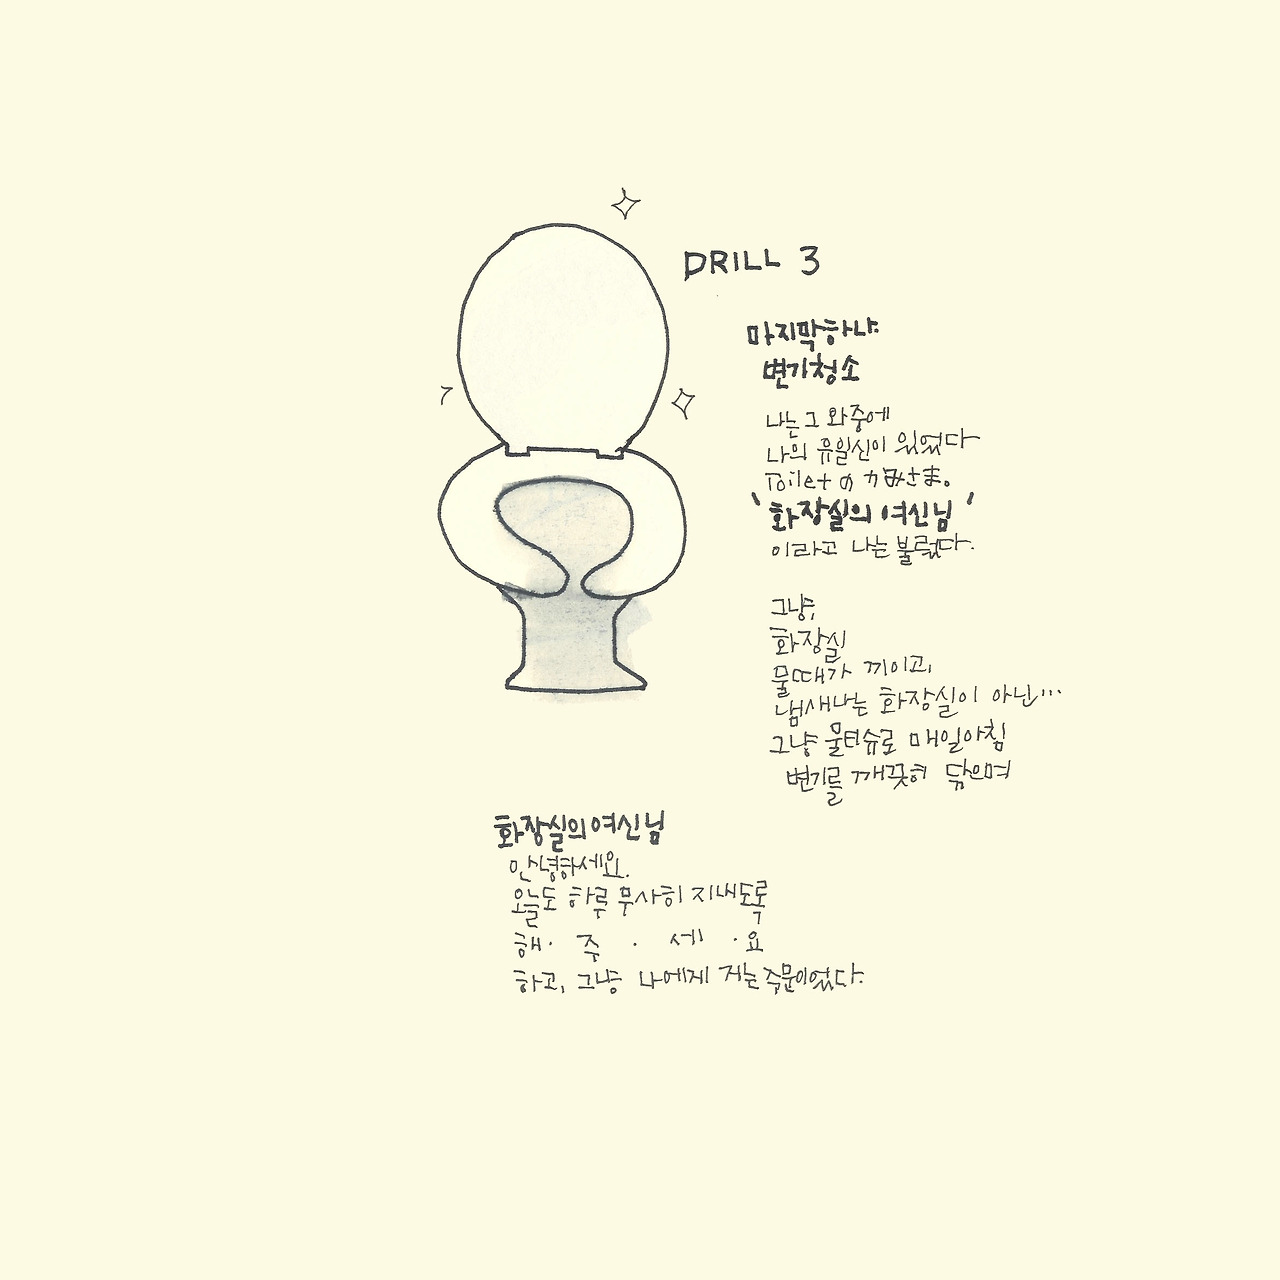 DRILL 3
마지막하나.
변기청소
나는 그 와중에
나의 유일신이 있었다
Toilet の カみさま.
'화장실의 여신님'
이라고 나는 불렀다.
그냥,
화장실
물때가 끼이고,
냄새나는 화장실이 아닌...
그냥 물티슈로 매일아침
변기를 깨끗히 닦으며
화장실의 여신님
안녕하세요.
오늘도 하루 무사히 지내도록
해 · 주 · 세 · 요
하고, 그냥 나에게 저는 주문이었다.